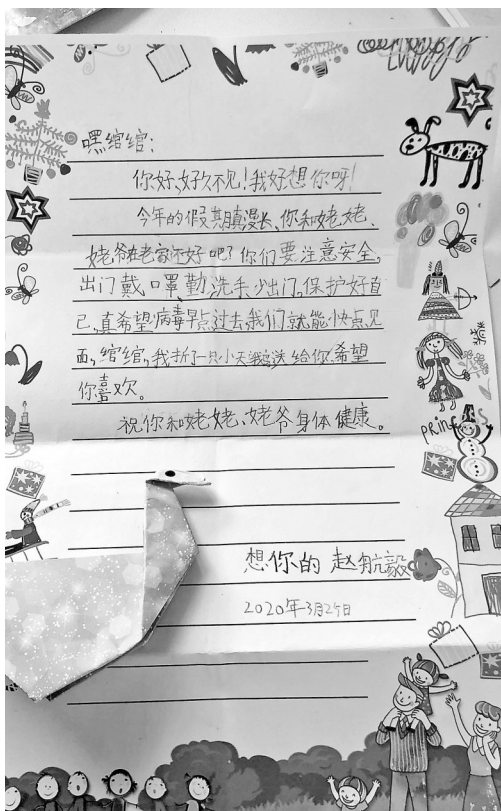 嘿绾绾:
你好,好久不见!我好想你呀!
今年的假期真漫长、你和姥姥、
姥爷在老家还好吧?你们要注意安全,
出门戴口罩、勤洗手、少出门,保护好自
己,真希望病毒早点过去,我们就能快点见
面,绾绾,我折了一只小天鹅送给你,希望
你喜欢。
祝你和姥姥、姥爷身体健康。
想你的 赵航毅
2020年3月29日